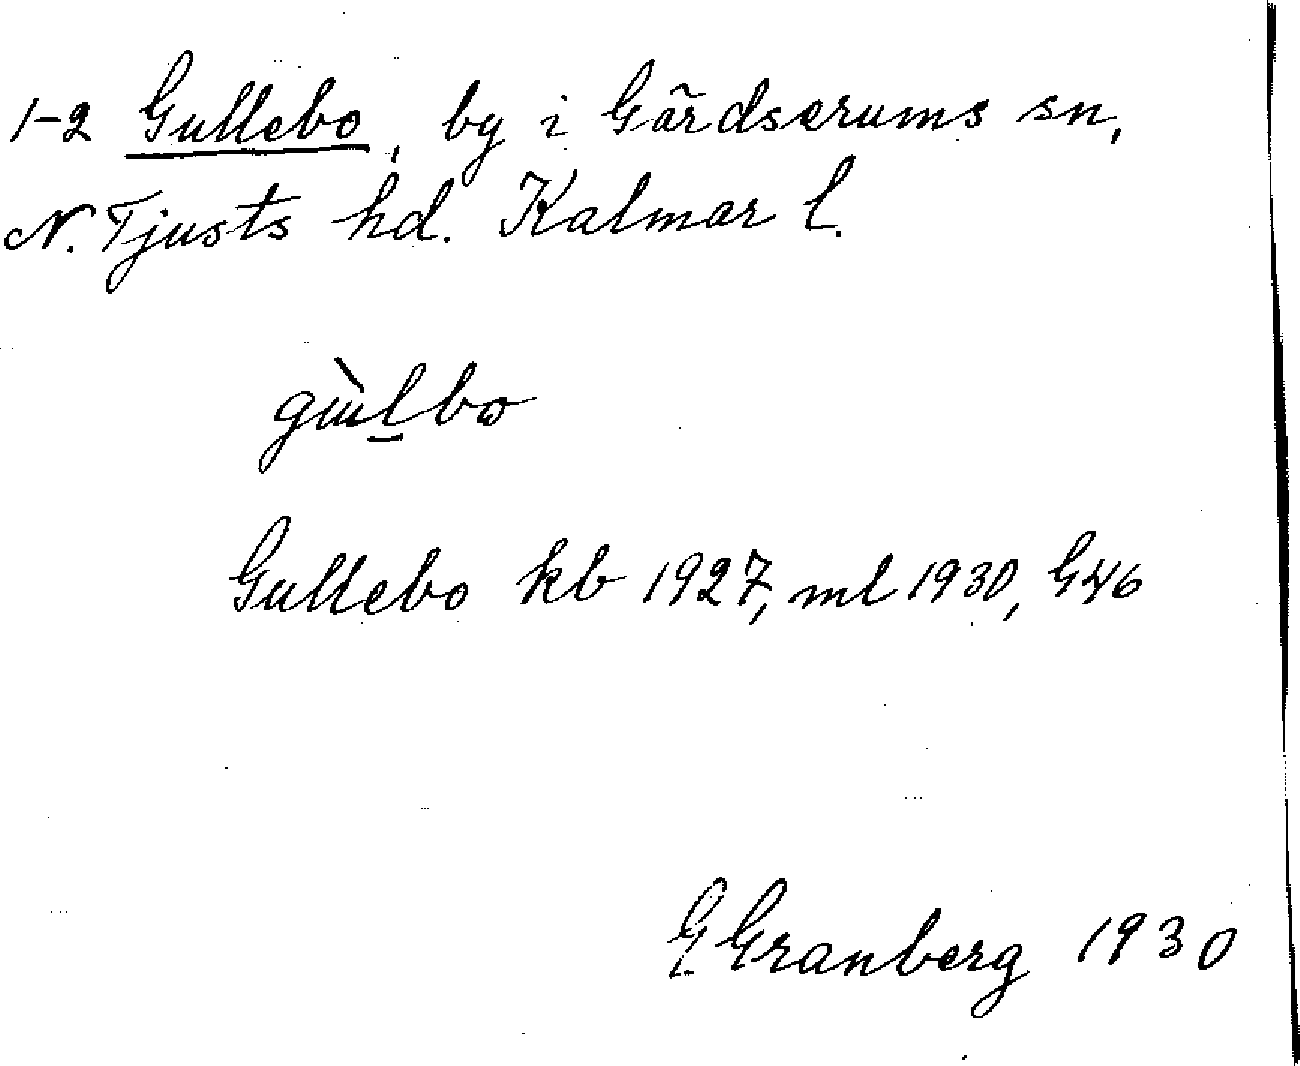 1-2 Gullebo, by i Gärdserums sn,
N. Tjusts hd. Kalmar l.
gɯ̀l̲bo
Gullebo kb 1927, ml 1930, G46
G Granberg 1930